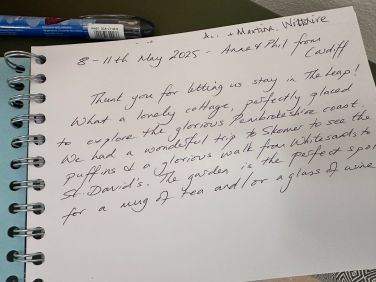 & Martine, Wiltshire
8-11th May 2025 - Anne & Phil from
Cardiff
Thank you for letting us stay in The heap!
What a lovely cottage, perfectly placed
to explore the glorious Pembrokeshire coast.
We had a wonderful trip to Skomer to see the
puffins & a glorious walk from Whitesands to
St. David's. The garden is the perfect spot
for a mug of tea and/or a glass of wine